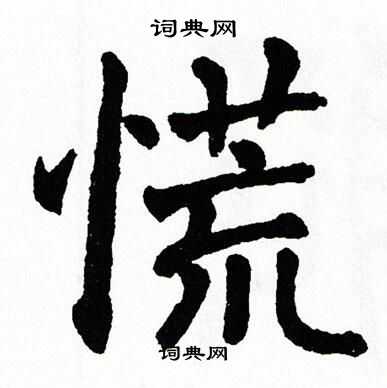 词典网
慌
词典网